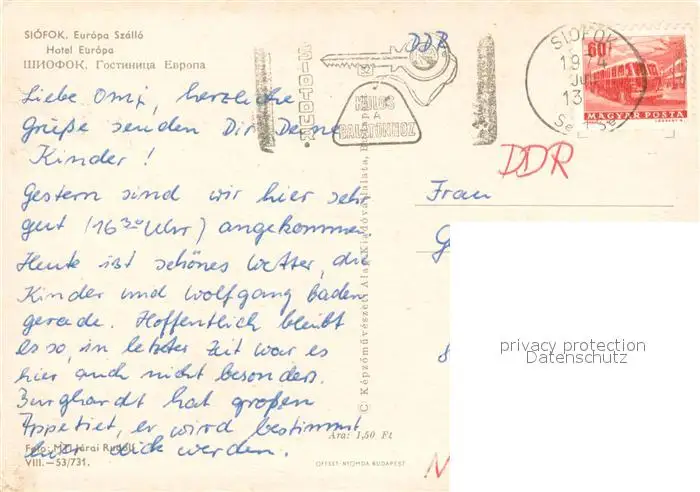 SIÓFOK, Európa Szálló
Hotel Európa
ШИОФОК, Гостиница Европа
Liebe Omi, herzliche
Grüße senden Dir Deine
Kinder!
Gestern sind wir hier sehr
gut (16 30 Uhr) angekommen
Heute ist schönes Wetter, die
Kinder und Wolfgang baden
gerade. Hoffentlich bleibt
es so, in letzter Zeit war es
hier auch nicht besonders.
Burghardt hat großen
Appetiet, er wird bestimmt
dick werden.
Foto: MTI Járai Rudolf
VIII.—53/731.
© Képzőművészeti Alap Kiadóvállalata, Budapest
Ára: 1,50 Ft
OFFSET-NYOMDA BUDAPEST
DDR
SIOTOUR
KULCS
A
BALATONHOZ
SIÓFOK
1974
13
60f
MAGYAR POSTA
DDR
Frau
G
privacy protection
Datenschutz